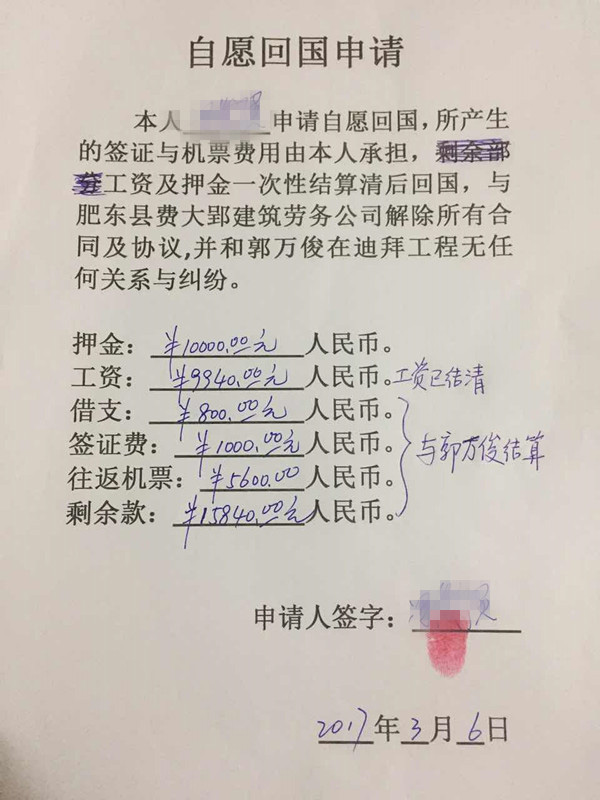 自愿回国申请
本人申请自愿回国，所产生
的签证与机票费用由本人承担，剩余部
分工资及押金一次性结算清后回国，与
肥东县费大郢建筑劳务公司解除所有合
同及协议,并和郭万俊在迪拜工程无任
何关系与纠纷。
押金：¥10000.00元人民币。
工资：¥9940.00元人民币。工资已结清
借支：¥800.00元人民币。
签证费：¥1000.00元人民币。
与郭万俊结算
往返机票：¥5600.00人民币。
剩余款：¥15840.00元人民币。
申请人签字：
2017年3月6日